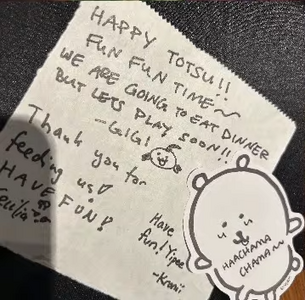 HAPPY TOTSU!!
FUN FUN TIME~
WE ARE GOING TO EAT DINNER
BUT LETS PLAY SOON!!
-GIGI
Thank you for
feeding us♡
HAVE FUN!
Cecilia
Have
fun! Yipee
HAACHAMA
CHAMA~